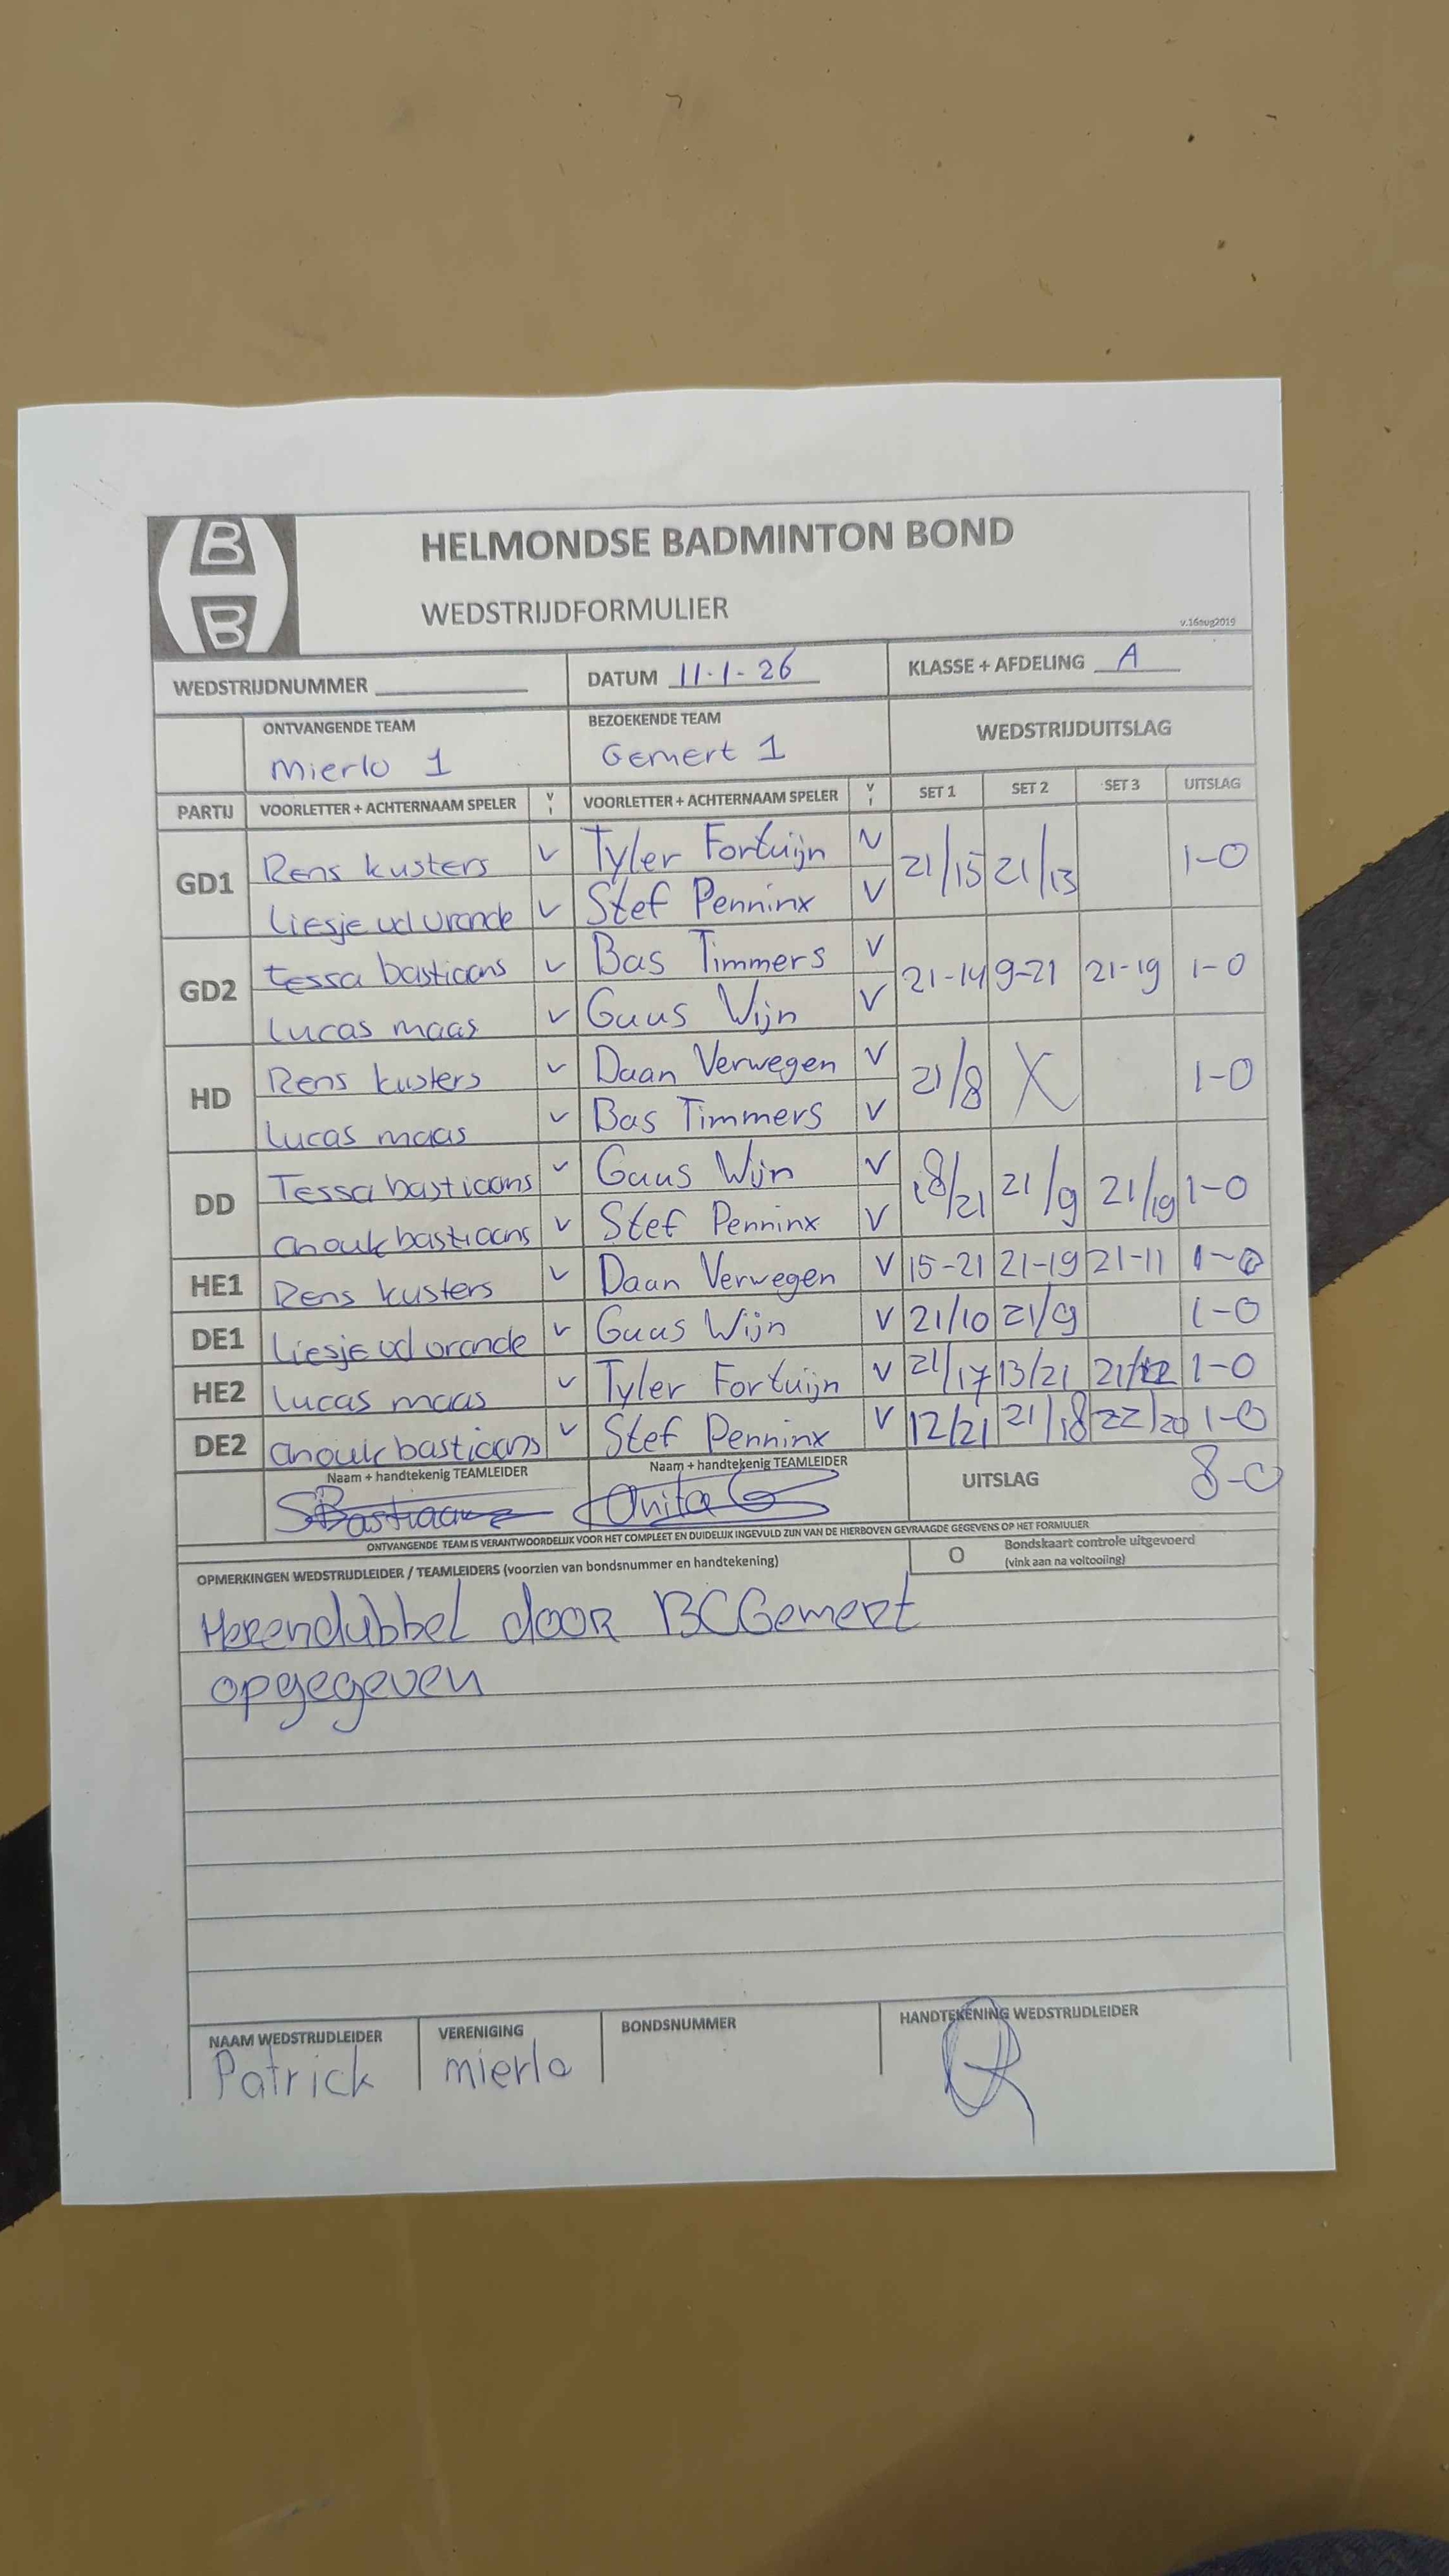 B
B
HELMONDSE BADMINTON BOND
WEDSTRIJDFORMULIER
v.16aug2019
WEDSTRIJDNUMMER
DATUM 11-1-26
KLASSE + AFDELING A
ONTVANGENDE TEAM
Mierlo 1
BEZOEKENDE TEAM
Gemert 1
WEDSTRIJDUITSLAG
PARTIJ VOORLETTER + ACHTERNAAM SPELER V VOORLETTER + ACHTERNAAM SPELER V SET 1 SET 2 SET 3 UITSLAG
GD1 Rens kusters V Tyler Fortuijn V 21/15 21/13 1-0
Liesje vd vrande V Stef Penninx V
GD2 tessa bastiaans V Bas Timmers V 21-14 9-21 21-19 1-0
Lucas maas V Guus Wijn V
HD Rens kusters V Daan Verwegen V 21/8 X 1-0
Lucas maas V Bas Timmers V
DD Tessa bastiaans V Guus Wijn V 18/21 21/9 21/19 1-0
anouk bastiaans V Stef Penninx V
HE1 Rens kusters V Daan Verwegen V 15-21 21-19 21-11 1-0
DE1 Liesje vd vrande V Guus Wijn V 21/10 21/9 1-0
HE2 Lucas maas V Tyler Fortuijn V 21/17 13/21 21/12 1-0
DE2 anouk bastiaans V Stef Penninx V 12/21 21/18 22/20 1-0
Naam + handtekenig TEAMLEIDER
SBastiaans
Naam + handtekenig TEAMLEIDER
Anita
UITSLAG 8-0
ONTVANGENDE TEAM IS VERANTWOORDELIJK VOOR HET COMPLEET EN DUIDELIJK INGEVULD ZIJN VAN DE HIERBOVEN GEVRAAGDE GEGEVENS OP HET FORMULIER
OPMERKINGEN WEDSTRIJDLEIDER / TEAMLEIDERS (voorzien van bondsnummer en handtekening)
O Bondskaart controle uitgevoerd
(vink aan na voltooiing)
Herendubbel door BCGemert
opgegeven
NAAM WEDSTRIJDLEIDER
Patrick
VERENIGING
mierlo
BONDSNUMMER
HANDTEKENING WEDSTRIJDLEIDER